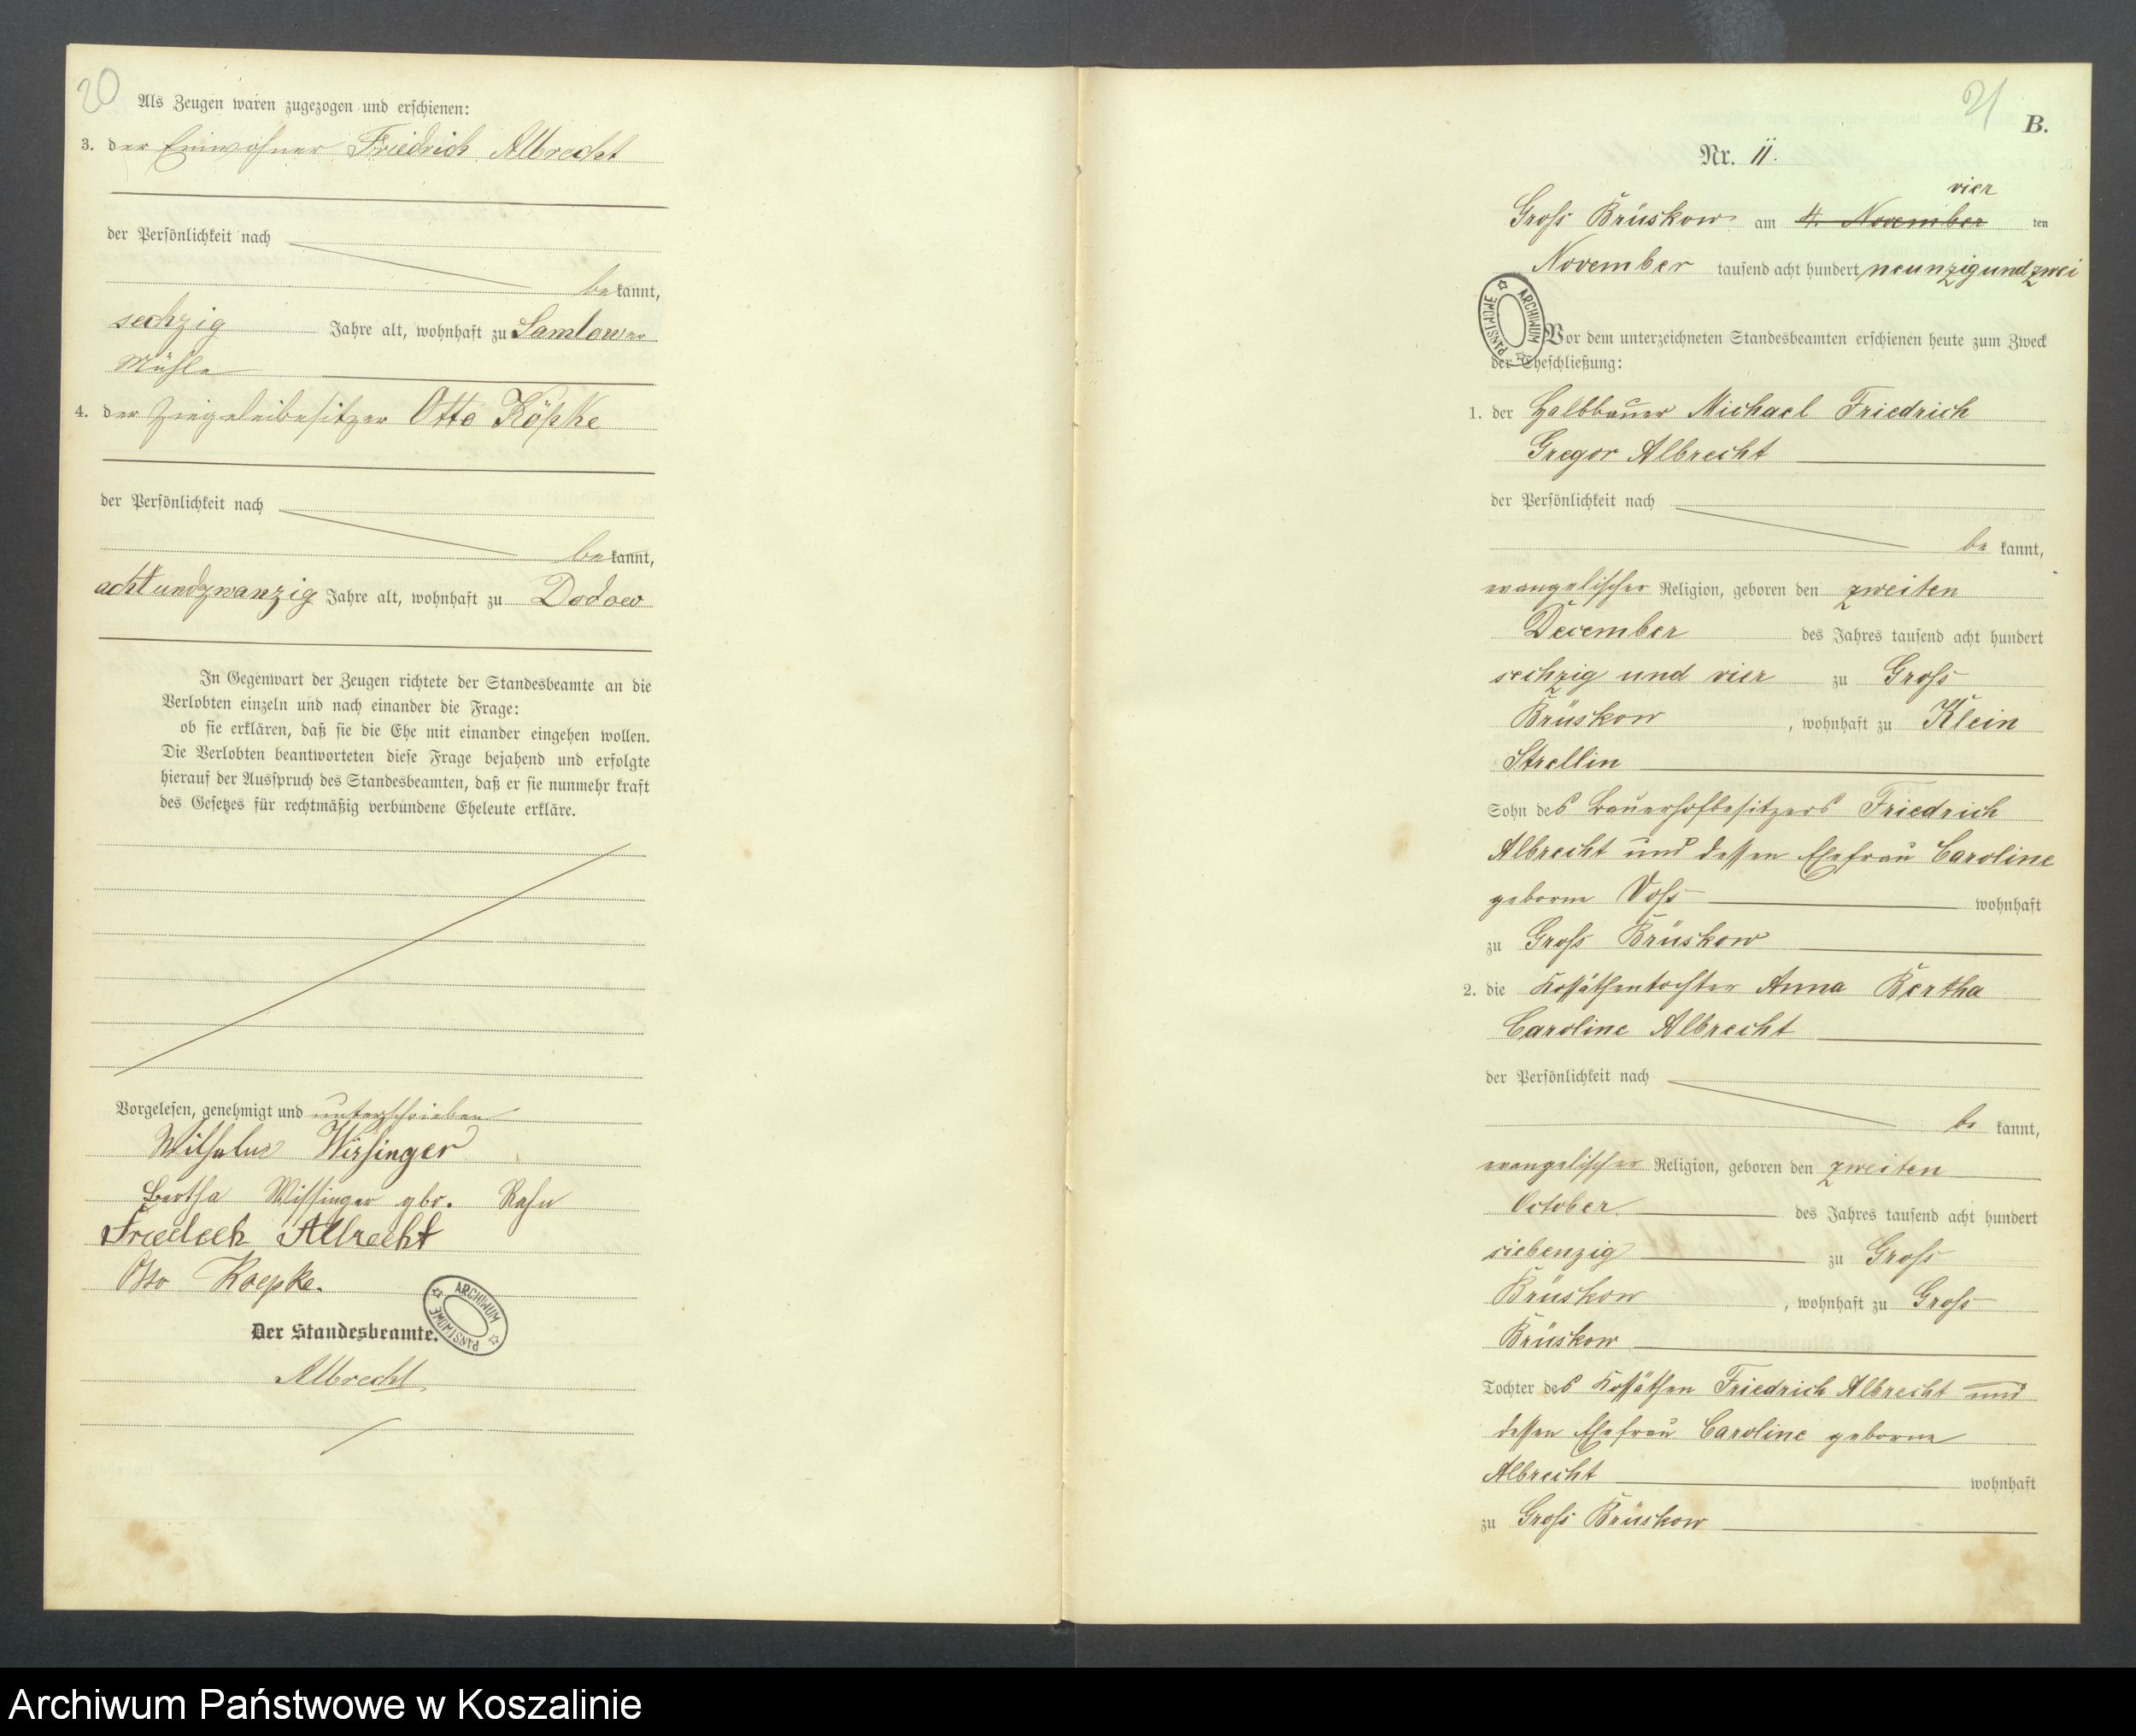 20
Als Zeugen waren zugezogen und erschienen:
3. der Einwohner Friedrich Albrecht
der Persönlichkeit nach
bekannt,
sechzig Jahre alt, wohnhaft zu Samlower
Mühle
4. der Ziegeleibesitzer Otto Köpke
der Persönlichkeit nach
bekannt,
achtundzwanzig Jahre alt, wohnhaft zu Dodow
In Gegenwart der Zeugen richtete der Standesbeamte an die
Verlobten einzeln und nach einander die Frage:
ob sie erklären, daß sie die Ehe mit einander eingehen wollen.
Die Verlobten beantworteten diese Frage bejahend und erfolgte
hierauf der Ausspruch des Standesbeamten, daß er sie nunmehr kraft
des Gesetzes für rechtmäßig verbundene Eheleute erkläre.
Vorgelesen, genehmigt und unterschrieben
Wilhelm Wissinger
Bertha Wissinger gbr. Rahn
Friedrich Albrecht
Otto Koepke.
ARCHIWUM PAŃSTWOWE
Der Standesbeamte.
Albrecht
21
B.
Nr. 11.
vier
Gross Brüskow am 4. November ten
November tausend acht hundert neunzig und zwei
ARCHIWUM PAŃSTWOWE
Vor dem unterzeichneten Standesbeamten erschienen heute zum Zweck
der Eheschließung:
1. der Halbbauer Michael Friedrich
Gregor Albrecht
der Persönlichkeit nach
be kannt,
evangelischer Religion, geboren den zweiten
December des Jahres tausend acht hundert
sechzig und vier zu Gross
Brüskow, wohnhaft zu Klein
Strellin
Sohn des Bauerhofbesitzers Friedrich
Albrecht und dessen Ehefrau Caroline
geborne Voss wohnhaft
zu Gross Brüskow
2. die Kossäthentochter Anna Bertha
Caroline Albrecht
der Persönlichkeit nach
be kannt,
evangelischer Religion, geboren den zweiten
October des Jahres tausend acht hundert
siebenzig zu Gross
Brüskow, wohnhaft zu Gross
Brüskow
Tochter des Kossäthen Friedrich Albrecht und
dessen Ehefrau Caroline geborne
Albrecht wohnhaft
zu Gross Brüskow
Archiwum Państwowe w Koszalinie